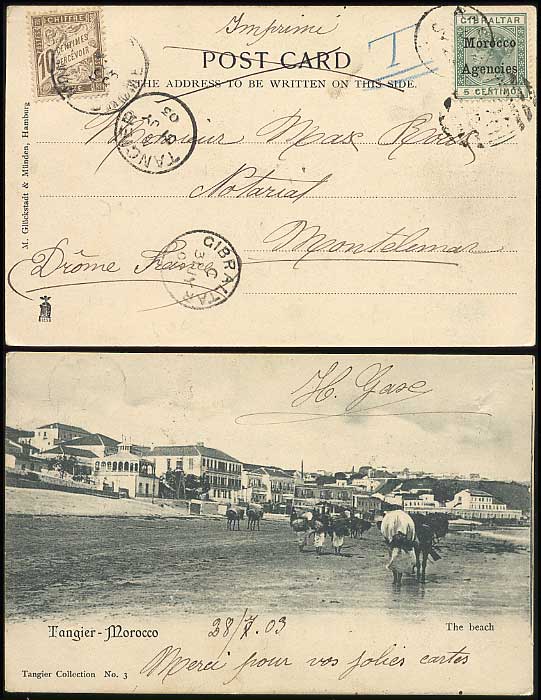 Imprimé
POST CARD
THE ADDRESS TO BE WRITTEN ON THIS SIDE.
T
10 CENTIMES
A PERCEVOIR
CHIFFRE
GIBRALTAR
Morocco
Agencies
5 CENTIMOS
TANGIER
03
Monsieur Max
Notariat
Montelimar
Drôme France
GIBRALTAR
M. Glückstadt & Münden, Hamburg
H. Gase
Tangier-Morocco
28/7.03
The beach
Merci pour vos jolies cartes
Tangier Collection No. 3